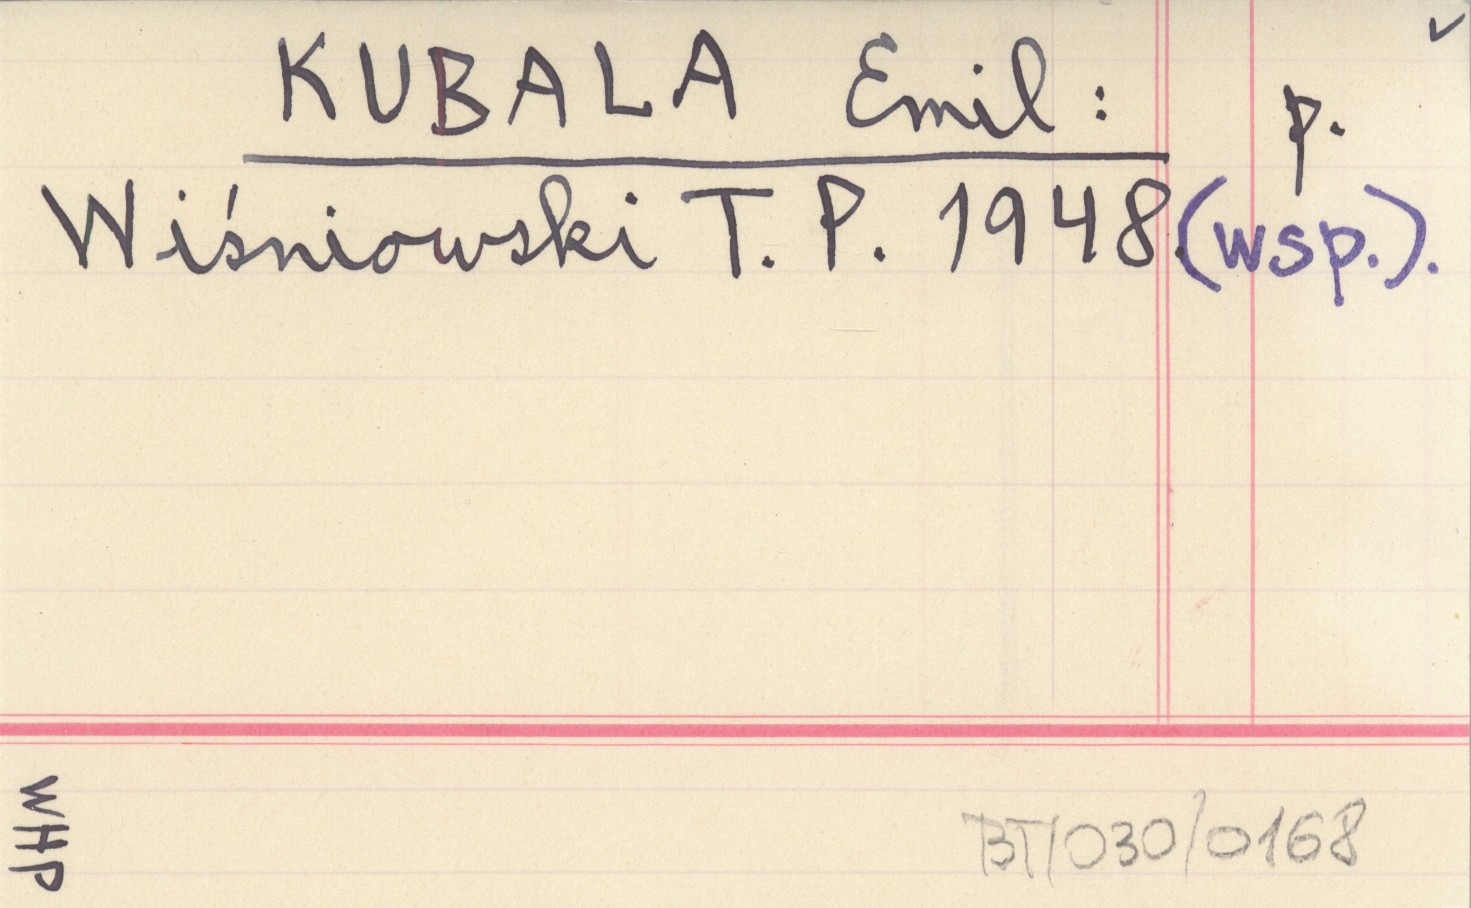 KUBALA Emil: p.
Wiśniowski T. P. 1948. (wsp.).
WHP
BT/030/0168